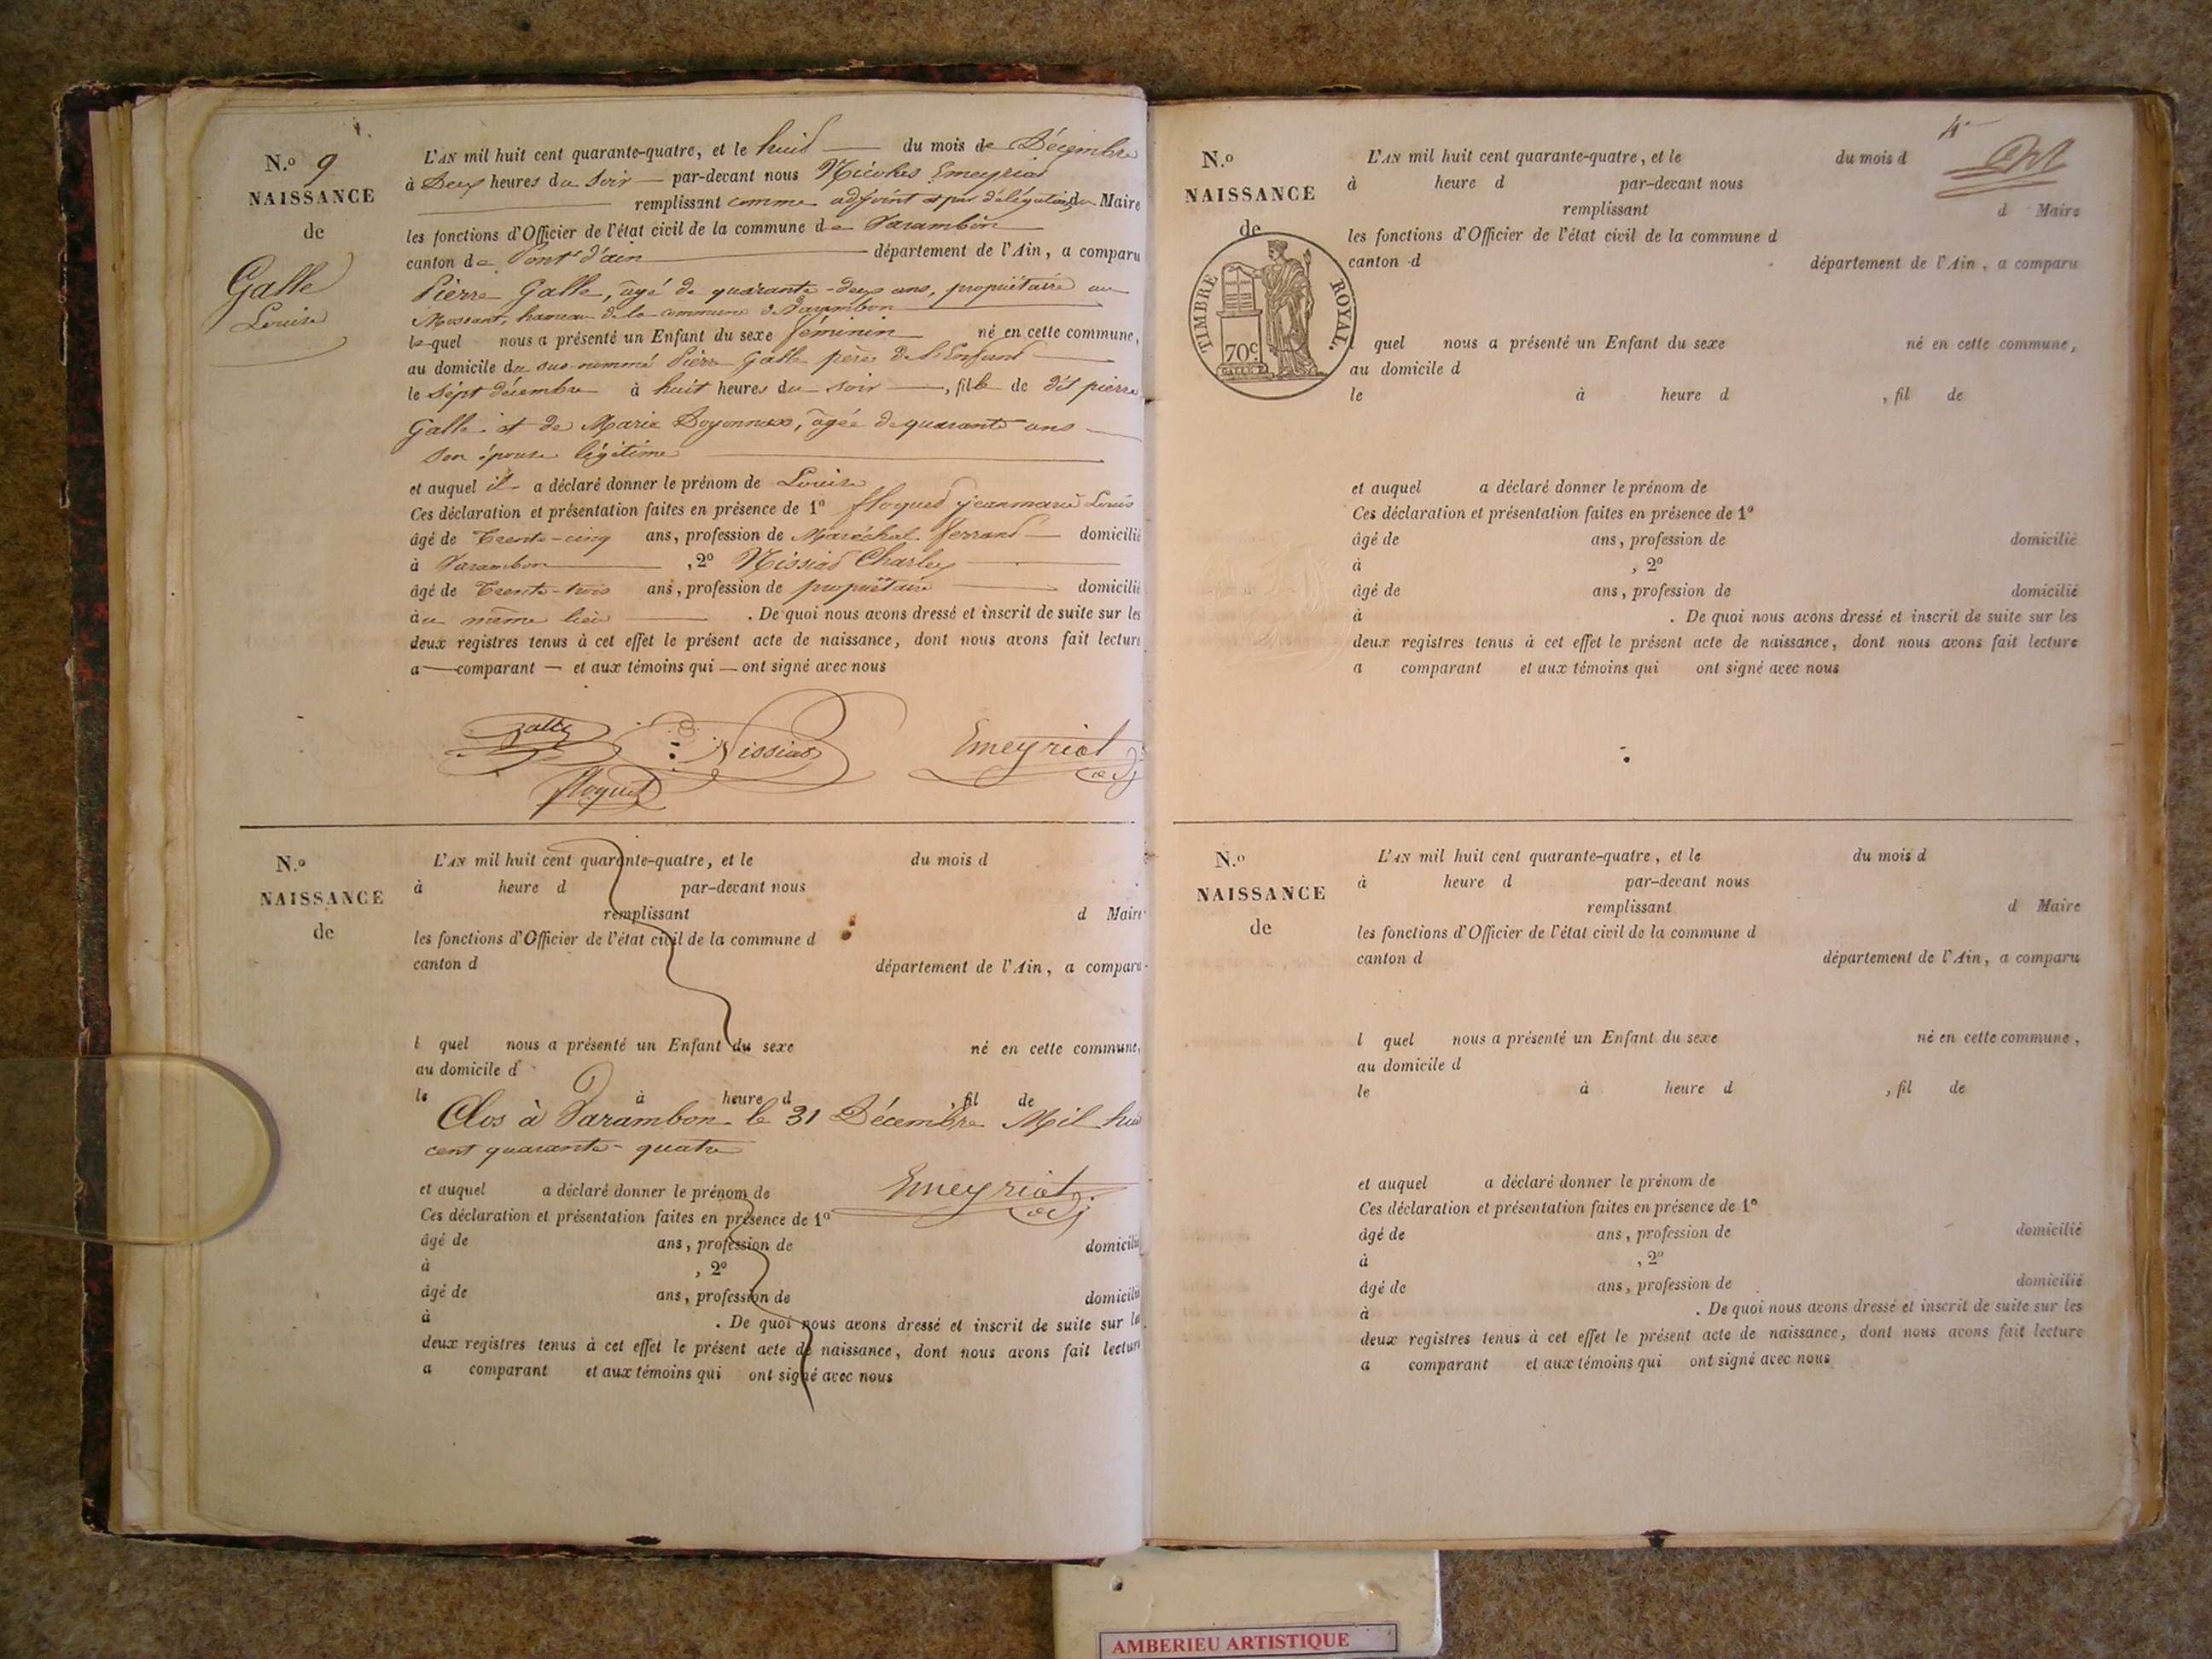 N.o 9
NAISSANCE
de
Galle
Louise
L'AN mil huit cent quarante-quatre, et le huit du mois de Décembre
à Deux heures du Soir par-devant nous Nicolas Emeyriat
remplissant comme adjoint et par délégation du Maire
les fonctions d'Officier de l'état civil de la commune de Varambon
canton de Pont d'ain département de l'Ain, a comparu
Pierre Galle, âgé de quarante-deux ans, propriétaire au
hameau de la commune de Varambon
lequel nous a présenté un Enfant du sexe féminin né en cette commune,
au domicile du sus-nommé Pierre Galle père de l'Enfant
le Sept décembre à huit heures du soir, fille de dit pierre
Galle et de Marie Doyonnax, âgée de quarante ans
son épouse légitime
et auquel il a déclaré donner le prénom de Louise
Ces déclaration et présentation faites en présence de 1o floquet jeanmarie Louis
âgé de Trente-cinq ans, profession de Maréchal ferrant domicilié
à Varambon, 2o Nissiat Charles
âgé de Trente-trois ans, profession de propriétaire domicilié
au même lieu. De quoi nous avons dressé et inscrit de suite sur les
deux registres tenus à cet effet le présent acte de naissance, dont nous avons fait lecture
a comparant et aux témoins qui ont signé avec nous
Galle Nissiat Emeyriat
floquet adj
N.o
NAISSANCE
de
L'AN mil huit cent quarante-quatre, et le du mois d
à heure d par-devant nous
remplissant d Maire
les fonctions d'Officier de l'état civil de la commune d
canton d département de l'Ain, a comparu
l quel nous a présenté un Enfant du sexe né en cette commune,
au domicile d
le à heure d, fil de
Clos à Varambon le 31 Décembre Mil huit
cent quarante-quatre
et auquel a déclaré donner le prénom de Emeyriat
Ces déclaration et présentation faites en présence de 1o adj
âgé de ans, profession de domicilié
à , 2o
âgé de ans, profession de domicilié
à . De quoi nous avons dressé et inscrit de suite sur les
deux registres tenus à cet effet le présent acte de naissance, dont nous avons fait lecture
a comparant et aux témoins qui ont signé avec nous
N.o
NAISSANCE
de
TIMBRE ROYAL.
70c
L'AN mil huit cent quarante-quatre, et le du mois d
à heure d par-devant nous
remplissant d Maire
les fonctions d'Officier de l'état civil de la commune d
canton d département de l'Ain, a comparu
quel nous a présenté un Enfant du sexe né en cette commune,
au domicile d
le à heure d , fil de
et auquel a déclaré donner le prénom de
Ces déclaration et présentation faites en présence de 1o
âgé de ans, profession de domicilié
à , 2o
âgé de ans, profession de domicilié
à . De quoi nous avons dressé et inscrit de suite sur les
deux registres tenus à cet effet le présent acte de naissance, dont nous avons fait lecture
a comparant et aux témoins qui ont signé avec nous
N.o
NAISSANCE
de
L'AN mil huit cent quarante-quatre, et le du mois d
à heure d par-devant nous
remplissant d Maire
les fonctions d'Officier de l'état civil de la commune d
canton d département de l'Ain, a comparu
l quel nous a présenté un Enfant du sexe né en cette commune,
au domicile d
le à heure d , fil de
et auquel a déclaré donner le prénom de
Ces déclaration et présentation faites en présence de 1o
âgé de ans, profession de domicilié
à , 2o
âgé de ans, profession de domicilié
à . De quoi nous avons dressé et inscrit de suite sur les
deux registres tenus à cet effet le présent acte de naissance, dont nous avons fait lecture
a comparant et aux témoins qui ont signé avec nous
AMBERIEU ARTISTIQUE